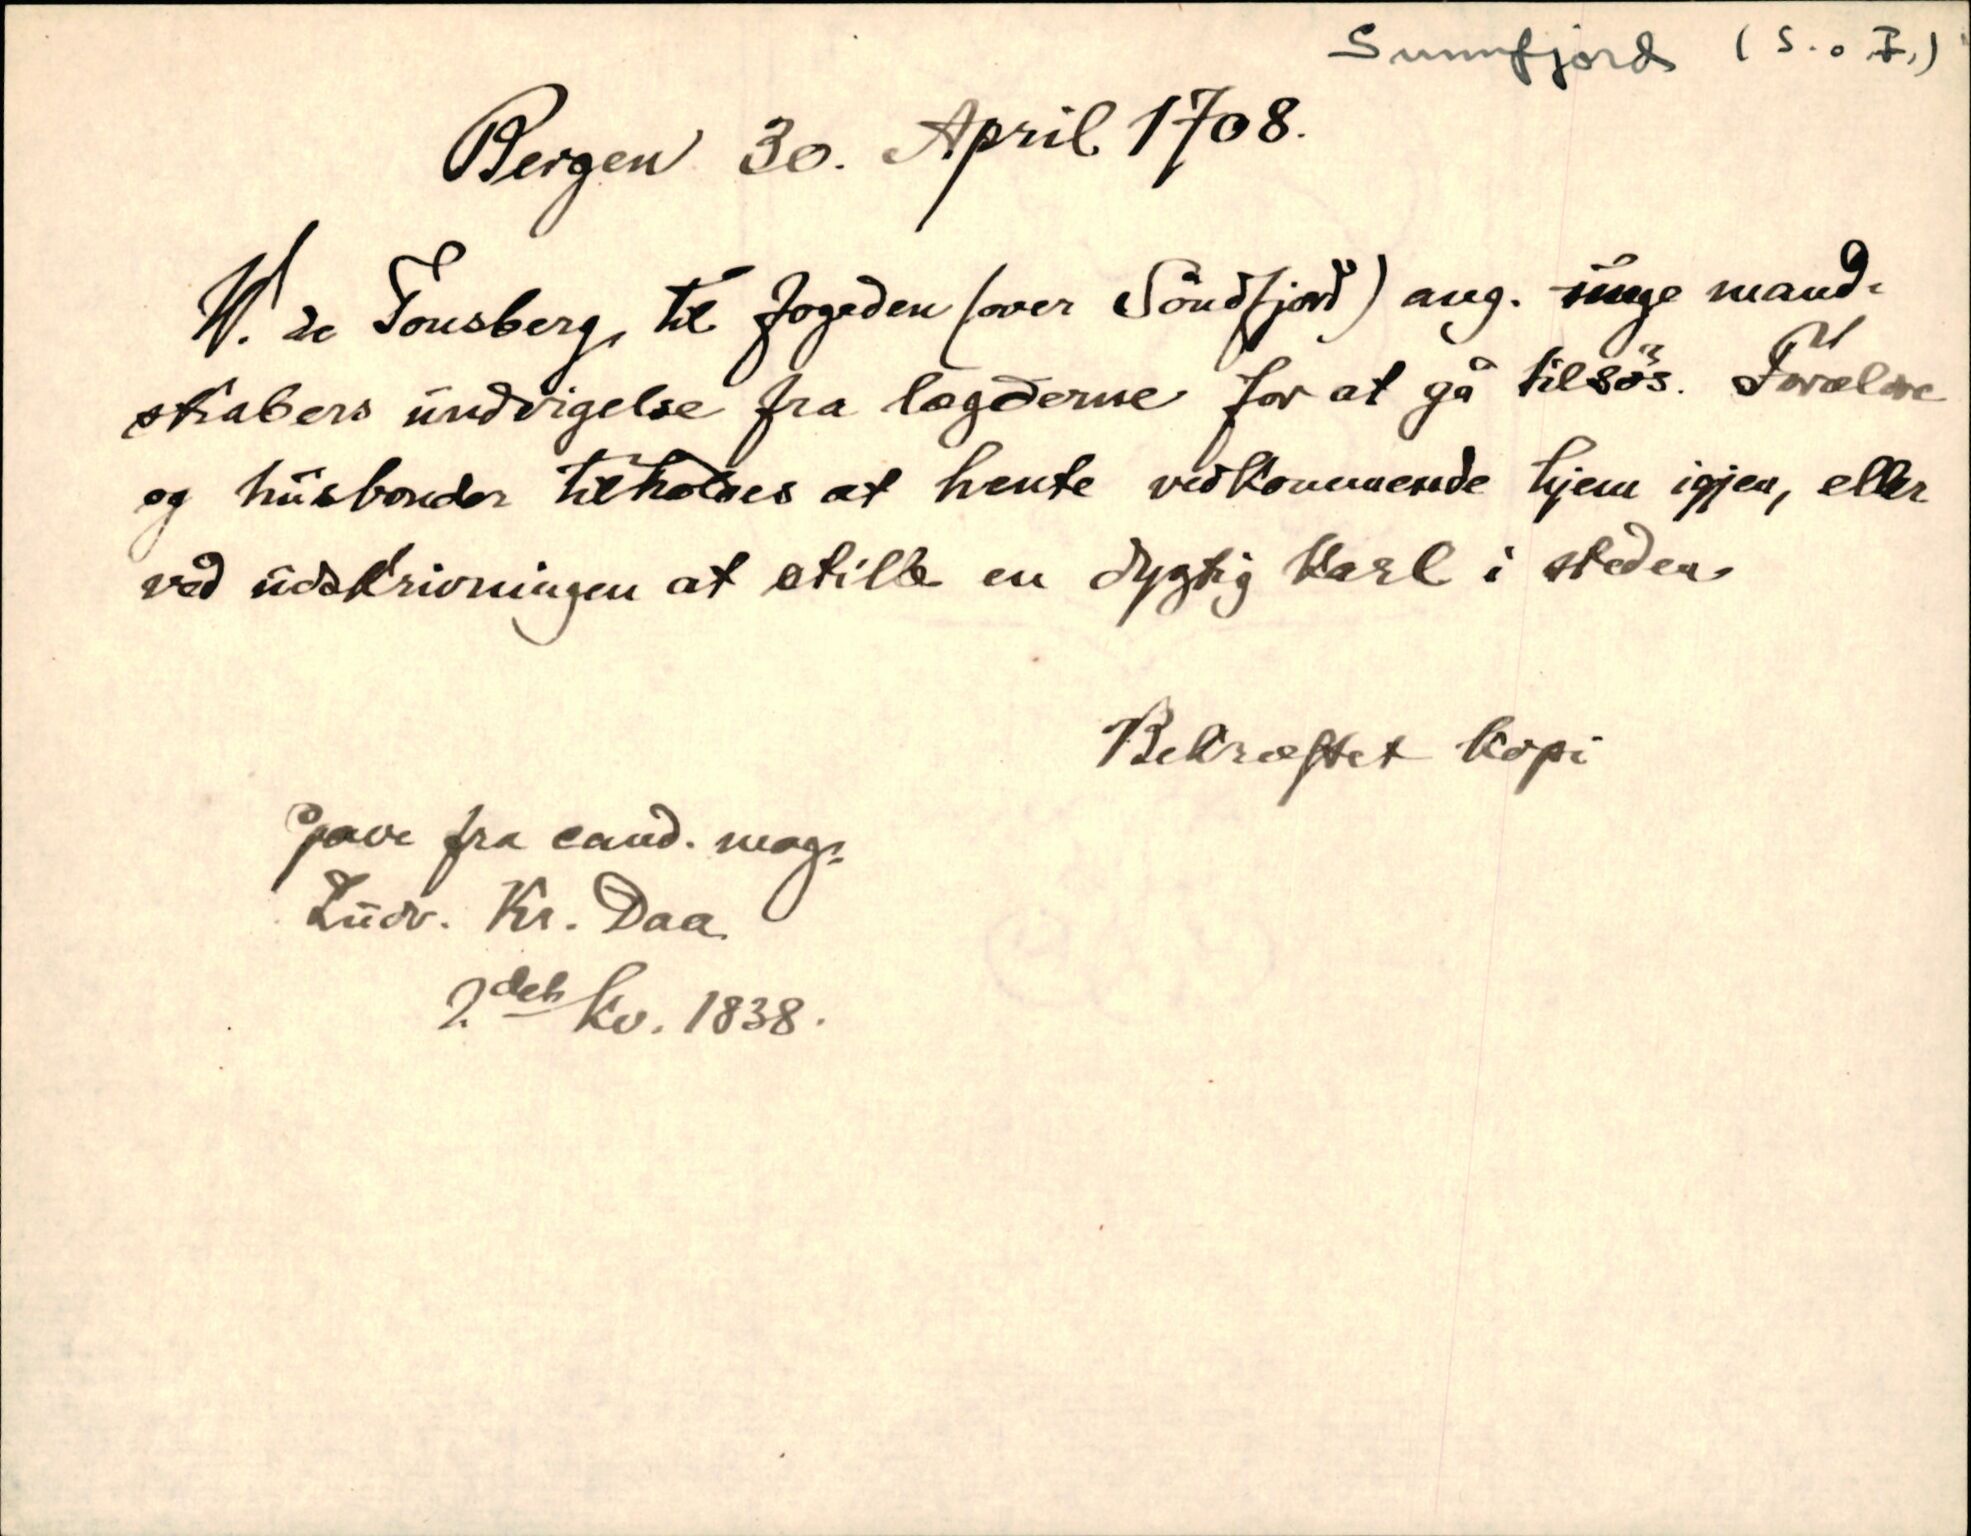 Sunnfjord (S. o. F.)
Bergen 30. April 1708.
W. de Tonsberg, til fogeden (over Söndfjord) ang. unge mand-
skabers undvigelse fra lægderne for at gå tilsös. Forældre
og husbonder tilholdes at hente vedkommende hjem igjen, eller
ved udskrivningen at stille en dygtig Karl i steden.
Bekræftet kopi
Gave fra cand. mag.
Ludv. Kr. Daa
2.det kv. 1838.